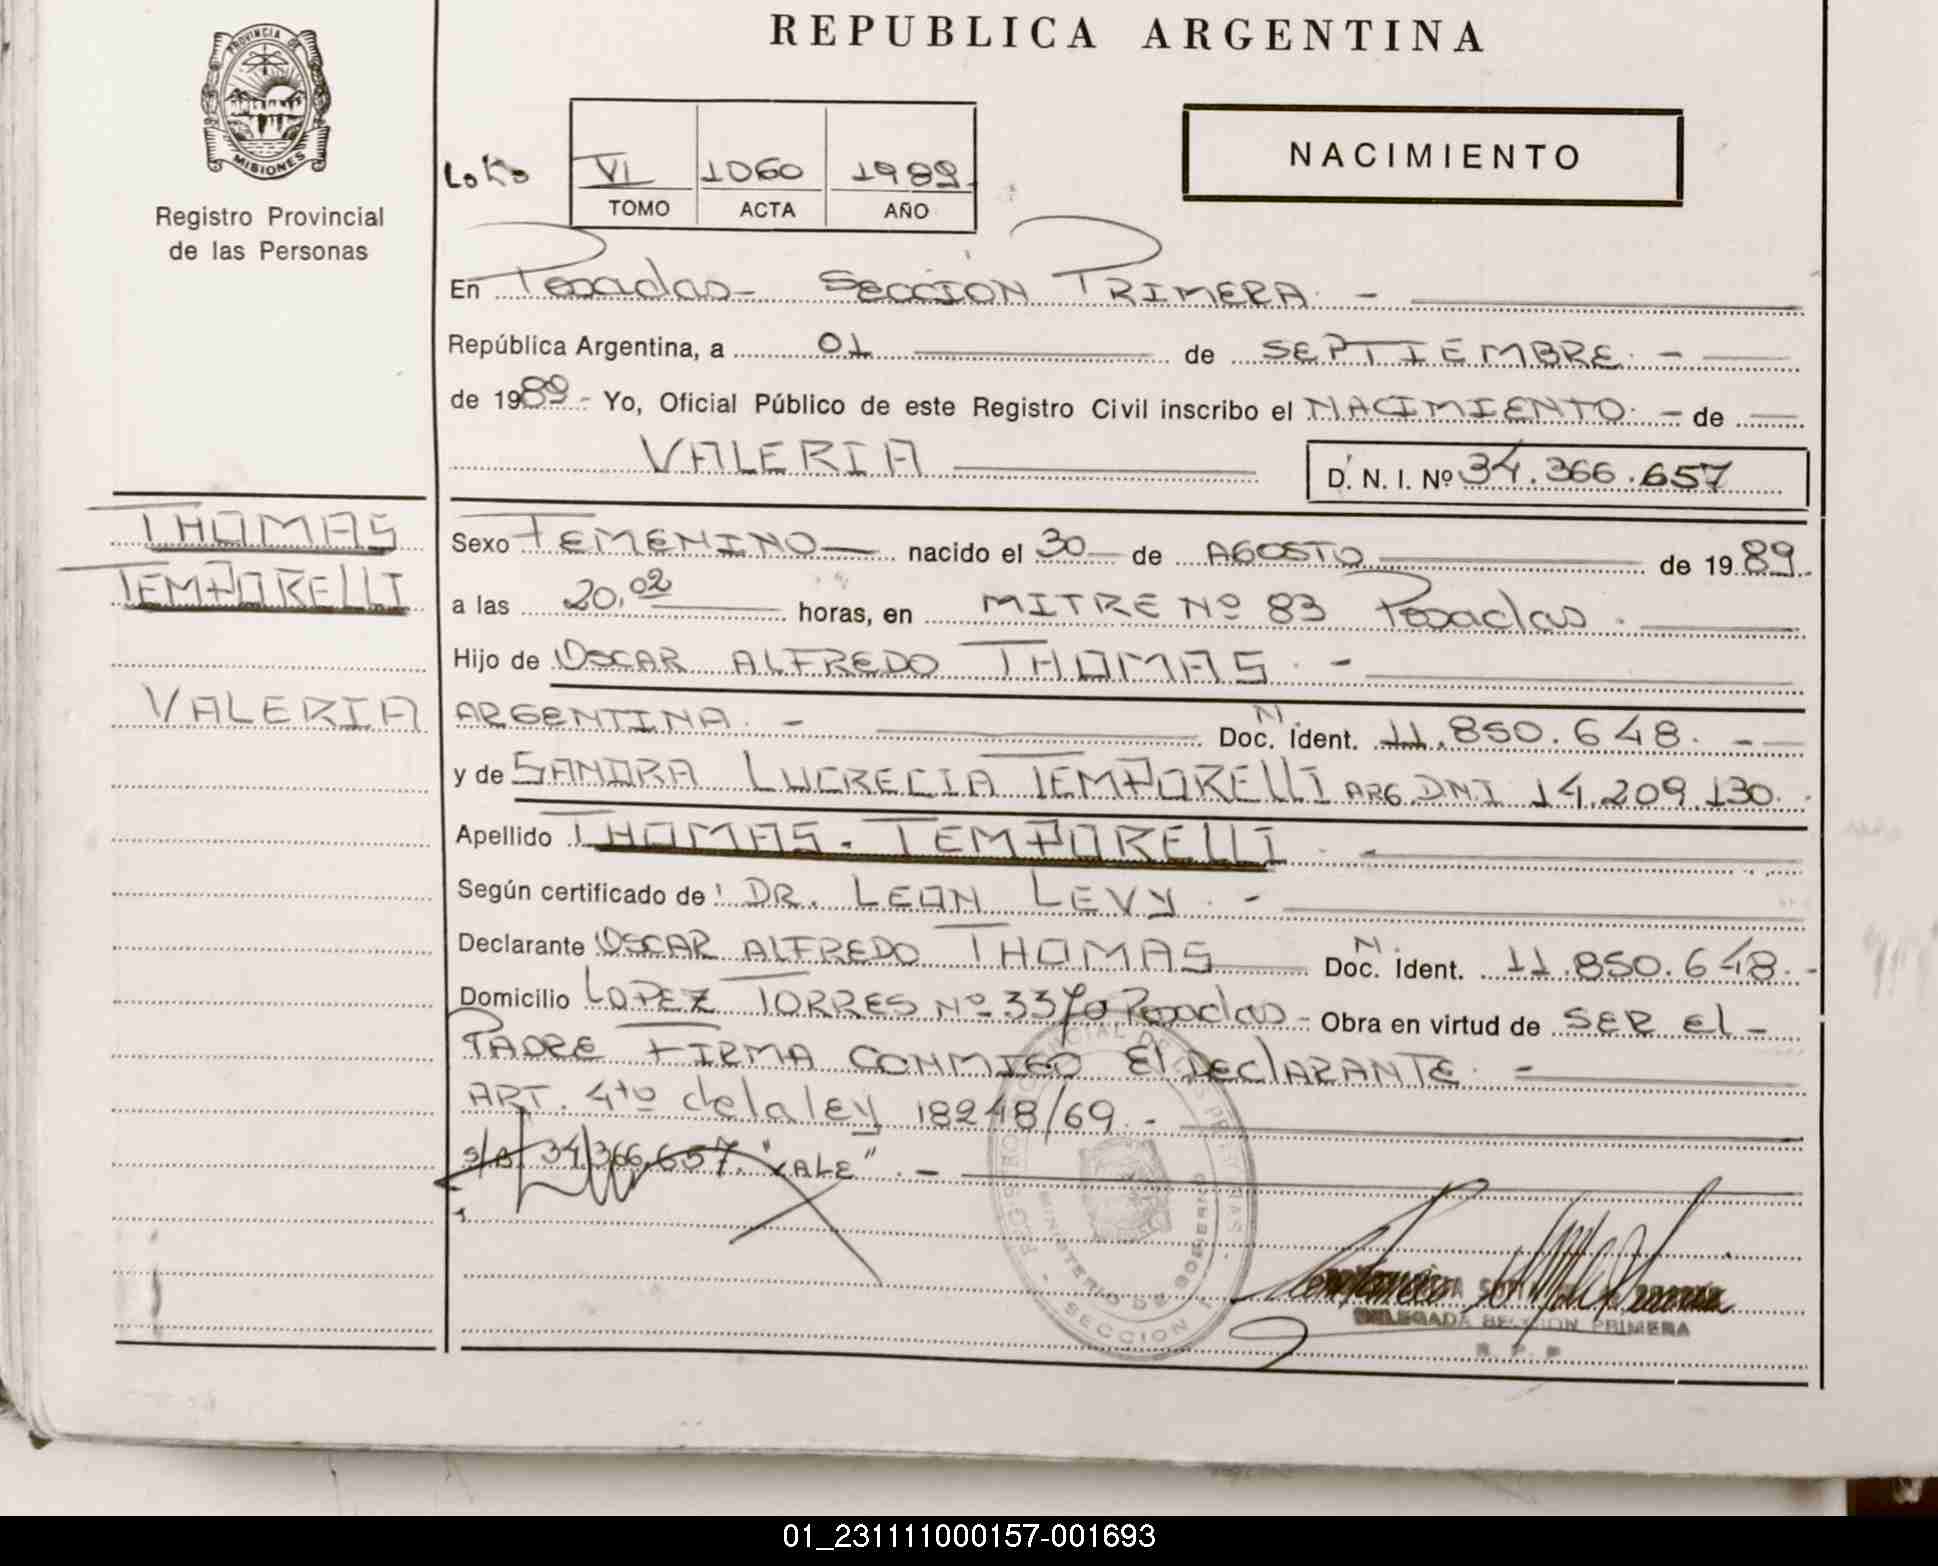 REPUBLICA ARGENTINA
PROVINCIA DE MISIONES
Registro Provincial
de las Personas
NACIMIENTO
VI 1060 1989
TOMO ACTA AÑO
En Posadas - SECCION PRIMERA. -
República Argentina, a 01 de SEPTIEMBRE. -
de 1989.- Yo, Oficial Público de este Registro Civil inscribo el NACIMIENTO. - de
VALERIA D. N. I. Nº 34.366.657
THOMAS
TEMPORELLI
VALERIA
Sexo FEMENINO nacido el 30 de AGOSTO de 1989.
a las 20,02 horas, en MITRE Nº 83 Posadas.
Hijo de OSCAR ALFREDO THOMAS. -
ARGENTINA. - Doc. N. Ident. 11.850.648. -
y de SANDRA LUCRECIA TEMPORELLI ARG. DNI 14.209.130.
Apellido THOMAS - TEMPORELLI. -
Según certificado de DR. LEON LEVY. -
Declarante OSCAR ALFREDO THOMAS Doc. N. Ident. 11.850.648. -
Domicilio LOPEZ TORRES Nº Posadas - Obra en virtud de SER El -
PADRE FIRMA CONMIGO El DEClARANTE. -
ART. 4to de la ley 18248/69. -
s/B. 34.366.657. "VALE". -
MINISTERIO DE GOBIERNO
SECCION 1
DELEGADA SECCION PRIMERA
R. P. P
01_231111000157-001693